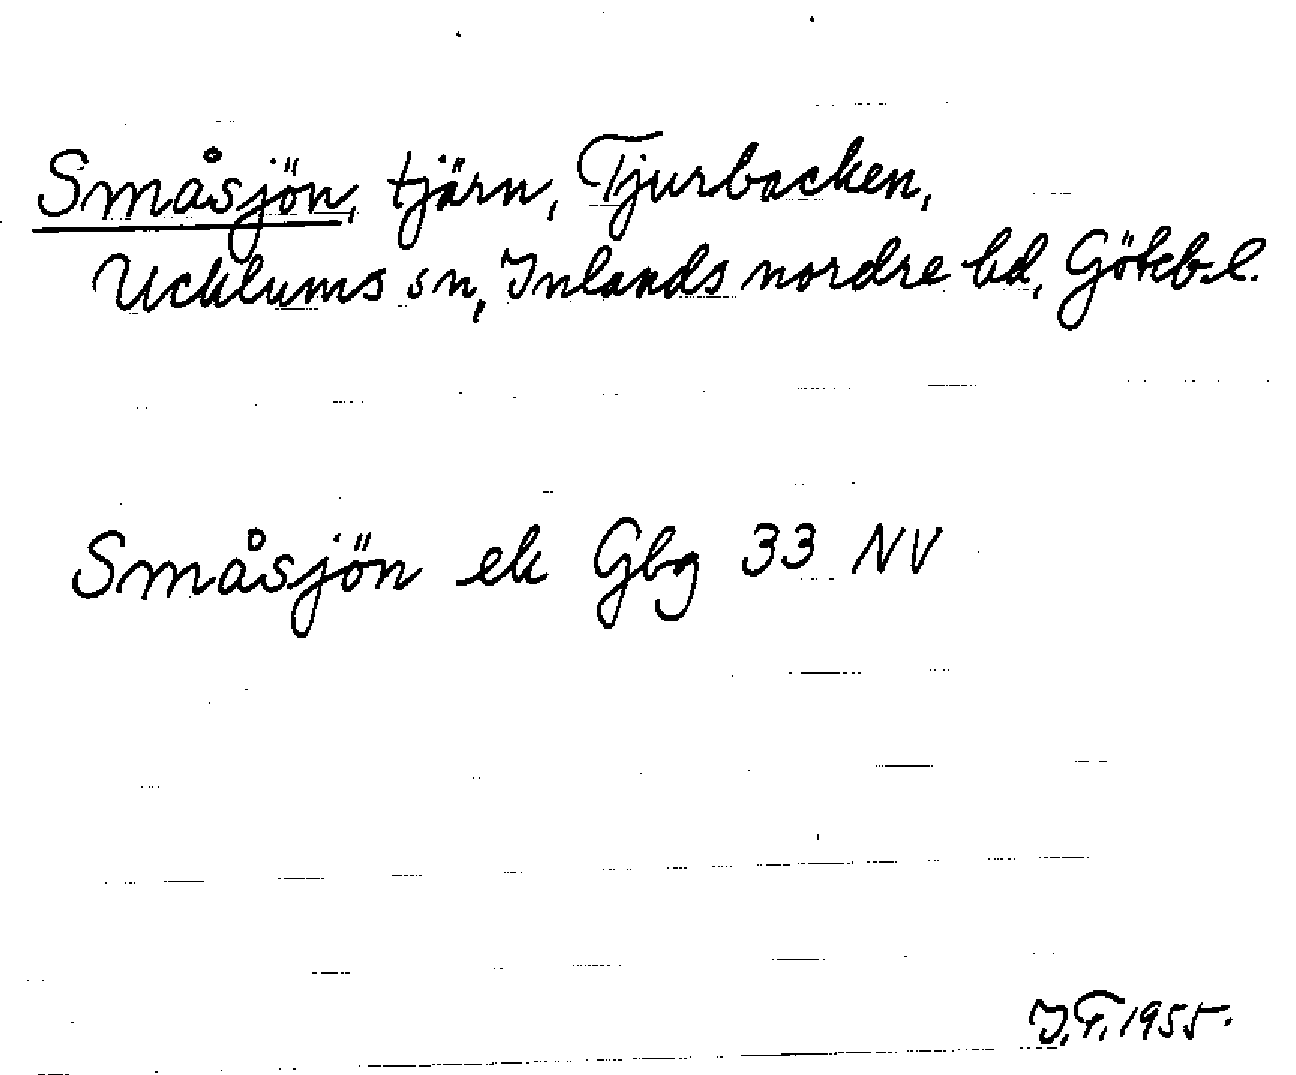 Småsjön, tjärn, Tjurbacken,
Ucklums sn, Inlands nordre hd, Götebl.
Småsjön ek Gbg 33 NV
J.F. 1955.